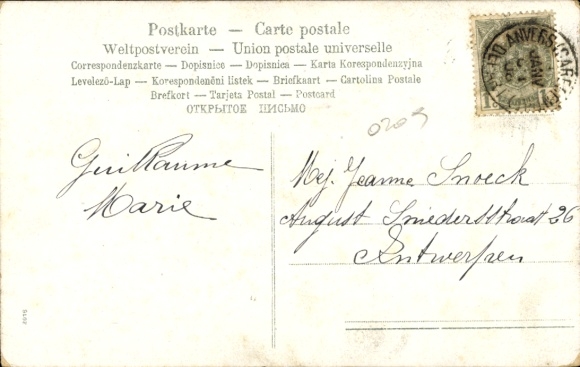 Postkarte — Carte postale
Weltpostverein — Union postale universelle
Correspondenzkarte — Dopisnice — Dopisnica — Karta Korespondenzyjna
Levelező-Lap — Korespondenční lístek — Briefkaart — Cartolina Postale
Brefkort — Tarjeta Postal — Postcard
ОТКРЫТОЕ ПИСЬМО
ANVERS (GARE)
0209
Guillaume
Marie
Mej. Jeanne Snoeck
August Sniedersstraat 26
Antwerpen